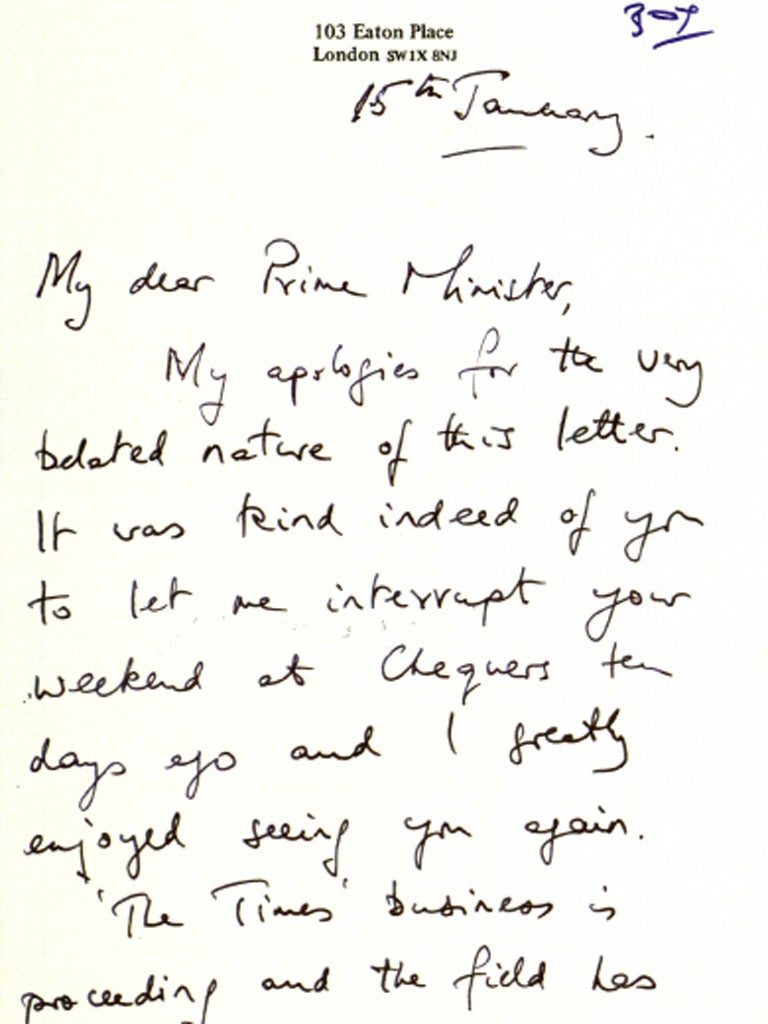 103 Eaton Place
London SW1X 8NJ
15th January.
My dear Prime Minister,
My apologies for the very
belated nature of this letter.
It was kind indeed of you
to let me interrupt your
weekend at Chequers ten
days ago and I greatly
enjoyed seeing you again.
'The Times' business is
proceeding and the field has